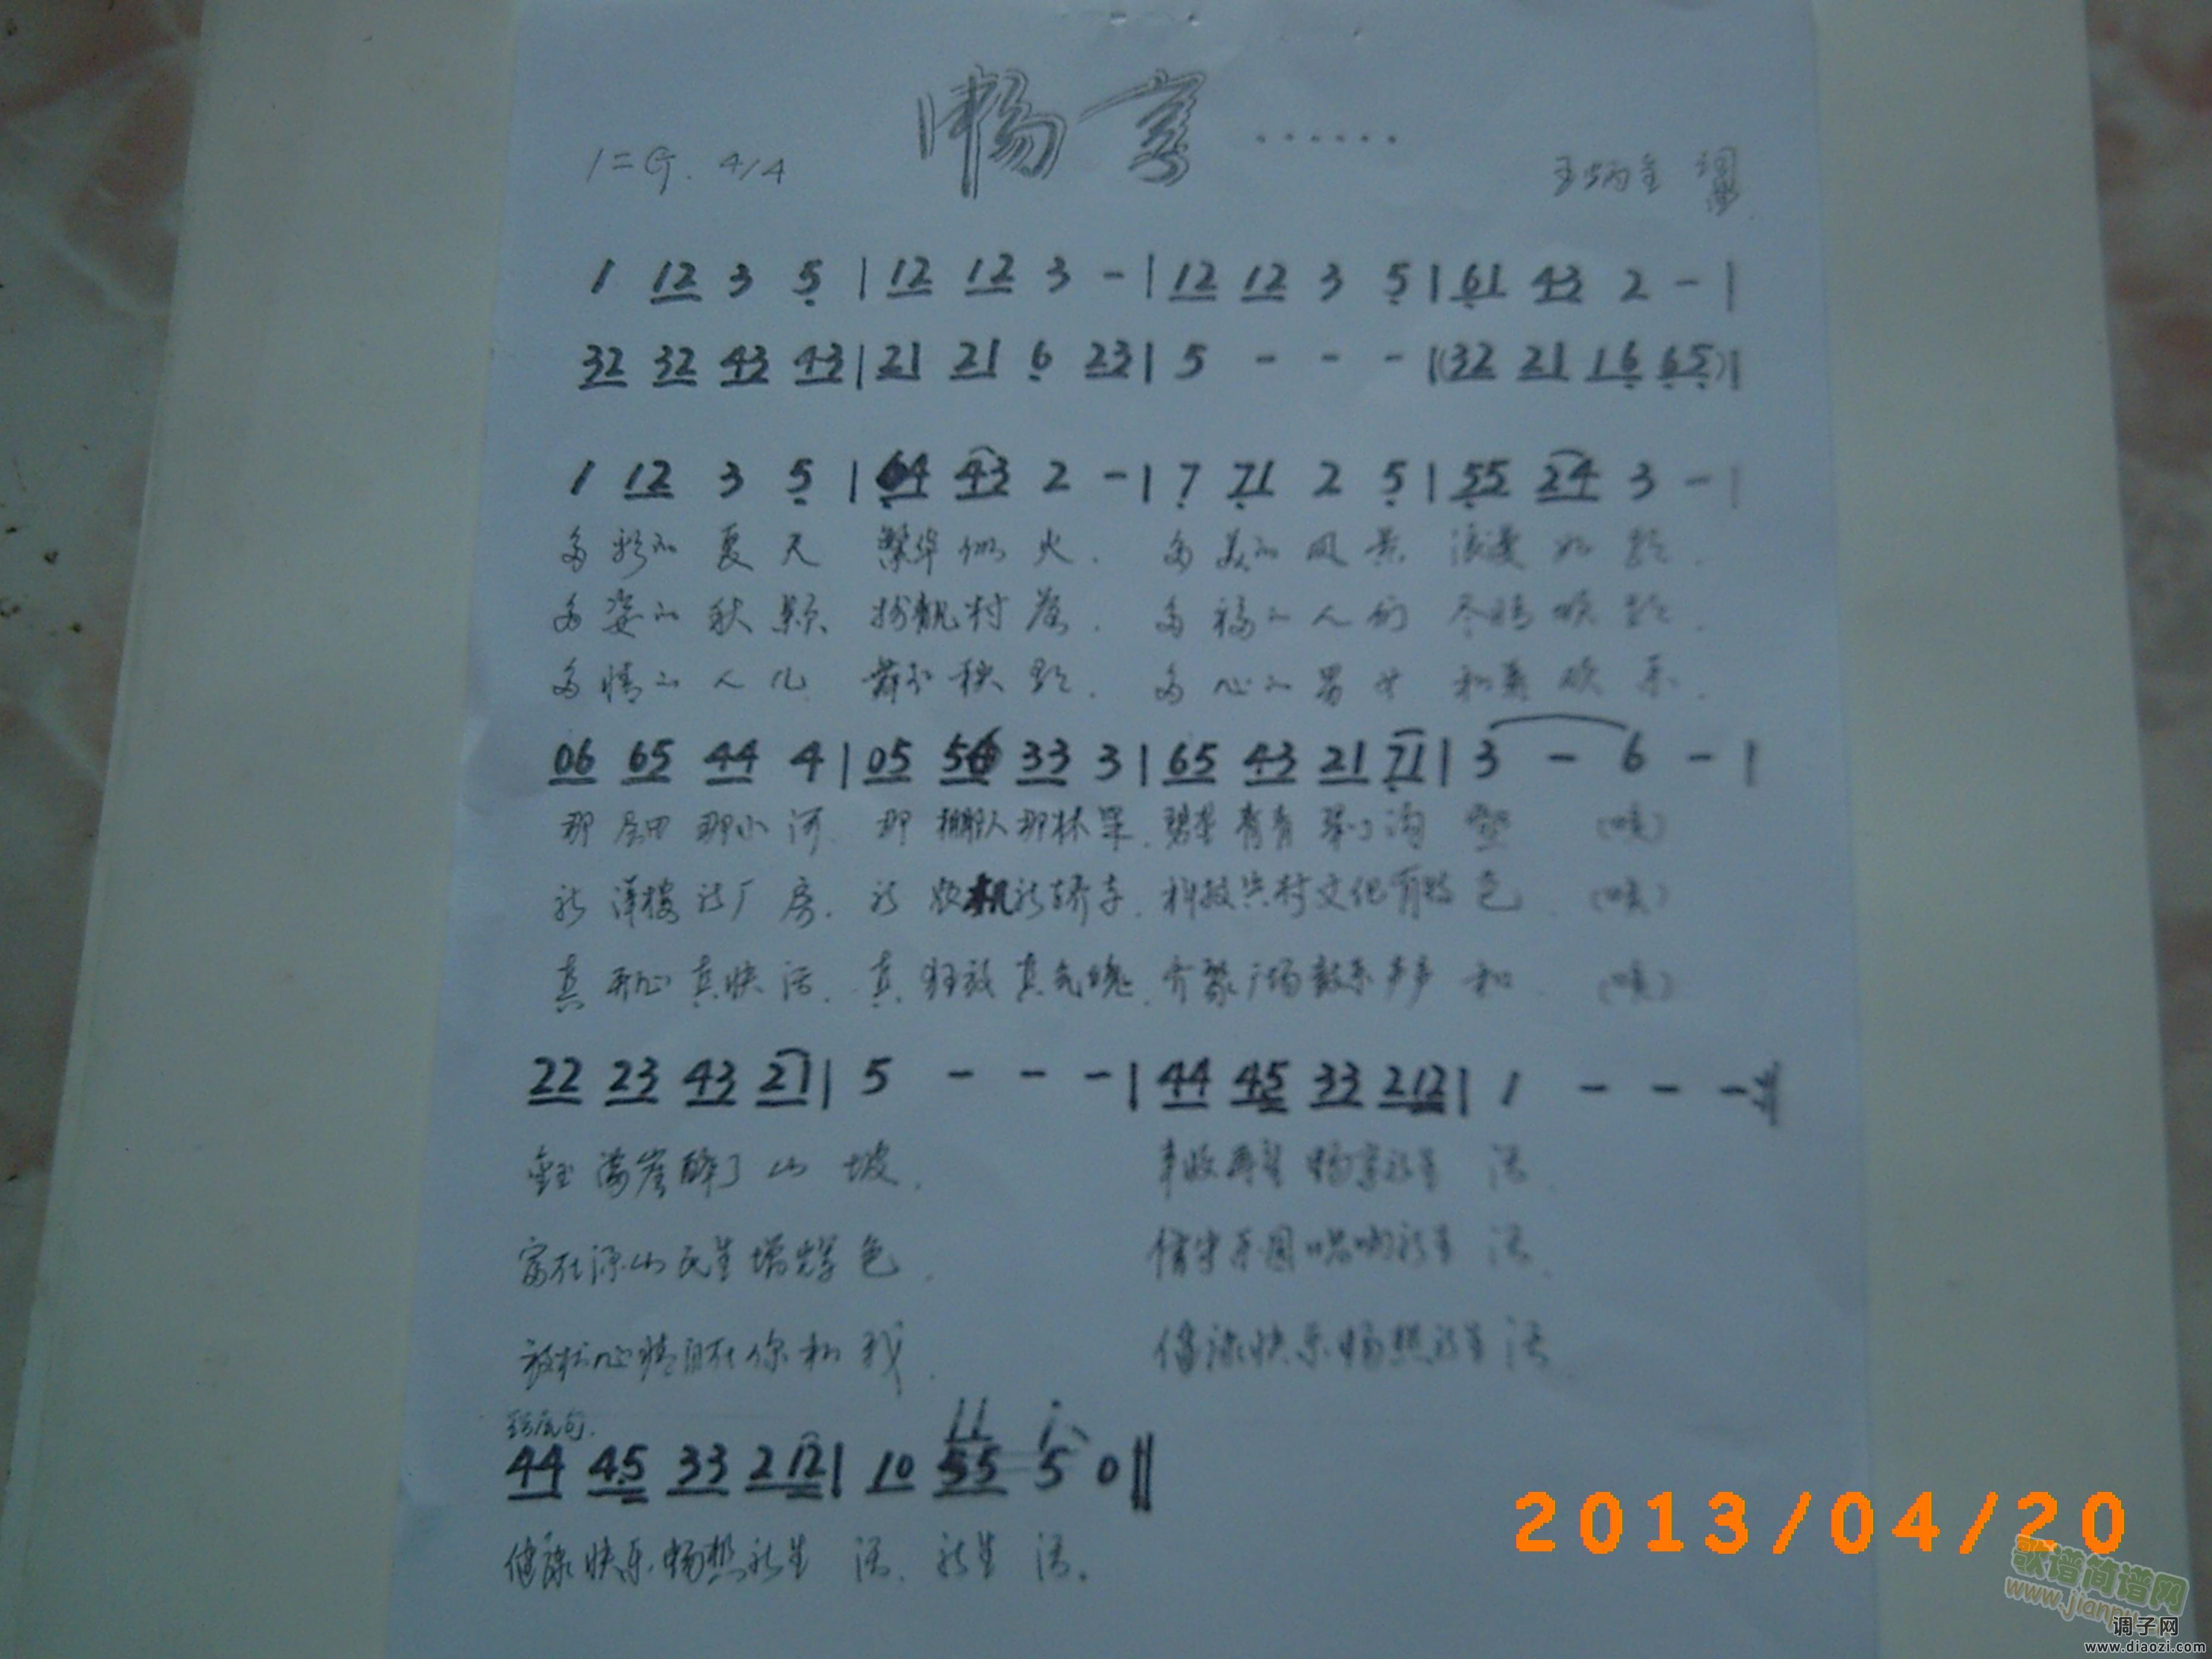 畅享 ······
1=G. 4/4
王炳全 词曲
1 12 3 5 | 12 12 3 - | 12 12 3 5 | 61 43 2 - |
32 32 43 43 | 21 21 6 23 | 5 - - - | (32 21 16 65) |
1 12 3 5 | 64 43 2 - | 7 71 2 5 | 55 24 3 - |
多彩的 夏天 繁华似火. 多美的 风景 浪漫如歌.
多姿的 秋景 扮靓村落. 多福的人们 尽情欢歌.
多情的人儿 舞和秧歌. 多心的男女 和美欢乐.
06 65 44 4 | 05 56 33 3 | 65 43 21 71 | 3 - 6 - |
那 层田 那小河. 那 那林果. 青青 翠了沟壑 (咳)
新 洋楼 新厂房. 新 农机新轿车. 科技兴村文化有特色. (咳)
真 开心 真快活. 真 狂放 真气魄. 齐聚广场鼓乐声声和. (咳)
22 23 43 21 | 5 - - - | 44 45 33 212 | 1 - - - :||
满崖醉了山坡. 丰收 畅享新生活.
富在深山民生增辉色. 乐园唱响新生活.
放松心情自在你和我. 健康快乐畅想新生活.
结尾句.
11 i
44 45 33 212 | 10 55 5 0 ||
健康快乐畅想新生活. 新生活.
2013/04/20
歌谱简谱网
www.jianpu
调子网
www.diaozi.com